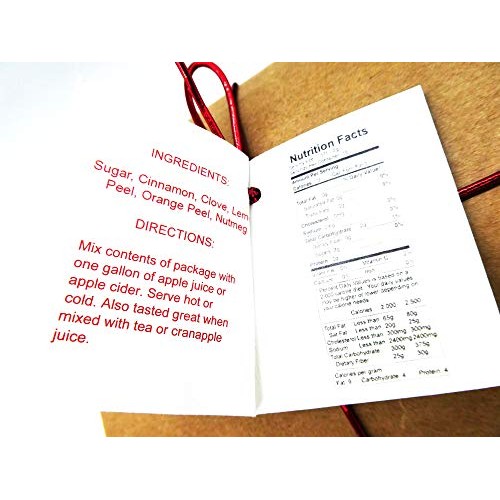 INGREDIENTS:
Sugar, Cinnamon, Clove, Lem
Peel, Orange Peel, Nutmeg
DIRECTIONS:
Mix contents of package with
one gallon of apple juice or
apple cider. Serve hot or
cold. Also tasted great when
mixed with tea or cranapple
juice.
Nutrition Facts
Amount Per Serving
Calories
% Daily Value
Total Fat
Saturated Fat
Trans Fat
Cholesterol
Sodium
Total Carbohydrate
Dietary Fiber
Sugars
Protein
Vitamin C
Calcium
Iron
Percent Daily Values is based on a
2,000 calorie diet. Your daily values
may be higher or lower depending on
your calorie needs.
Calories 2,000 2,500
Total Fat Less than 65g 80g
Sat Fat Less than 20g 25g
Cholesterol Less than 300mg 300mg
Sodium Less than 2400mg 2400mg
Total Carbohydrate 300g 375g
Dietary Fiber 25g 30g
Calories per gram
Fat 9 Carbohydrate 4 Protein 4